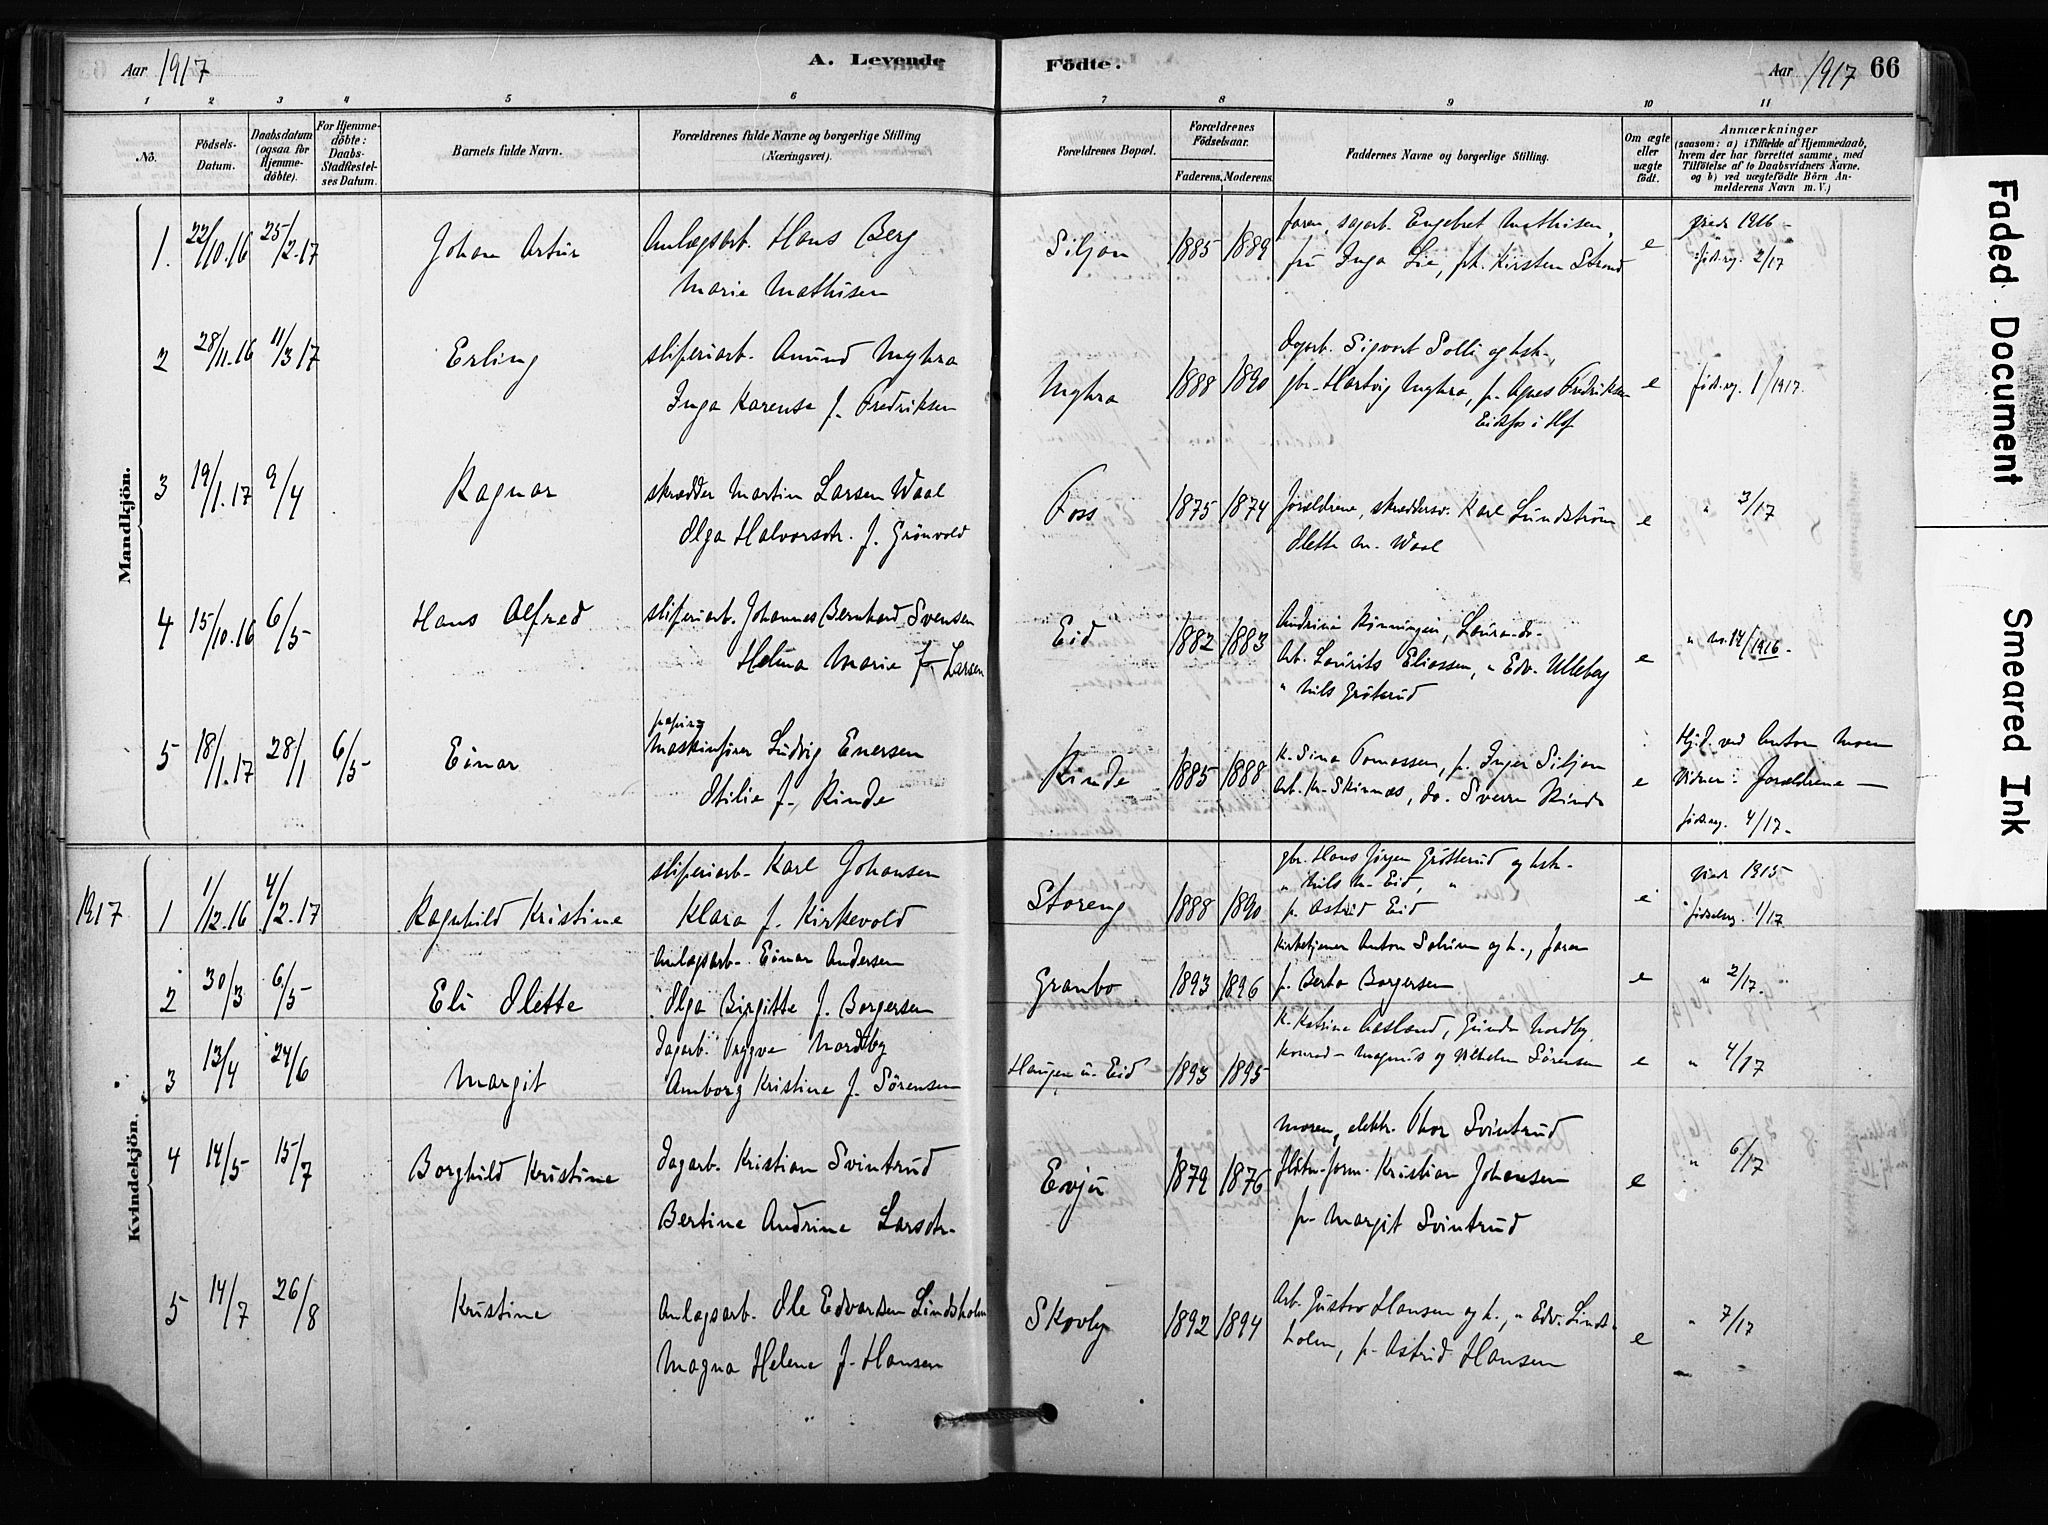 Aar 1917
A. Levende
Födte.
Aar 1917
66
1 2 3 4 5 6 7 8 9 10 11
No.
Födsels-Datum.
Daabsdatum (ogsaa for Hjemme-döbte).
For Hjemme-döbte: Daabs-Stadfæstel-ses Datum.
Barnets fulde Navn.
Forældrenes fulde Navne og borgerlige Stilling (Næringsvei).
Forældrenes Bopæl.
Forældrenes Födselsaar.
Faderens. Moderens.
Faddernes Navne og borgerlige Stilling.
Om ægte eller uægte födt.
Anmærkninger (saasom: a) i Tilfælde af Hjemmedaab, hvem der har forrettet samme, med Tilföielse af to Daabsvidners Navne. og b) ved uægtefödte Börn An-melderens Navn m. V.)
Mandkjön.
1. 22/10.16 25/2.17 Johan Artur Anlægsarb. Hans Berg
Marie Mathisen
Siljan 1885 1889 faren, sagarb. Engebret Mathisen,
fru Inga Lie, frk. Kirsten Strand e
viede 1916 -
föd.reg. 2/17
2 28/11.16 11/3 17 Erling sliperiarb. Amund Myhra
Inga Karense f. Fredriksen
Myhra 1888 1890 Dagarb. Sigvart Solli og hst.,
gbr. Hartvig Myhra, p. Agnes Fredriksen
Eidsfos i Hof e
föd.reg. 1/1917.
3 19/1.17 9/4 Ragnar skrædder Martin Larsen Waal
Olga Halvorsdtr. f. Grönvold
Foss 1875 1874 Forældrene, skræddersv. Karl Lundström
Olette M. Waal e
" 3/17
4 15/10.16 6/5 Hans Alfred sliperiarb. Johannes Bernhard Svensen
Helma Marie f. Larsen
Eid 1882 1883 Andrine Rönningen, Laura do.
Arb. Laurits Eliassen, " Edv. Ulleberg
" Nils Gröterud e
" No. 14/1916.
5 18/1.17 28/1 6/5 Einar papir
Maskinförer Ludvig Enersen
Otilie f. Rinde
Rinde 1885 1888 k. Sina Tomassen, p. Inger Siljan
arb. Kr. Skirnæs, do. Sverre Rinde e
Hj.d. ved Anton Moen
Vidner: Forældrene -
föd.reg. 4/17.
1917
Kvindekjön.
1 1/12.16 4/2.17 Ragnhild Kristine sliperiarb. Karl Johansen
Klara f. Kirkevold
Storeng 1888 1890 gbr. Hans Jörgen Grötterud og hst.
" Nils N. Eid, "
p. Astrid Eid e
viede 1915
födselreg. 1/17
2 30/3 6/5 Eli Olette Anlægsarb. Einar Andersen
Olga Birgitte f. Borgersen
Granbo 1893 1896 Kirketjener Anton Solum og h., faren
p. Berta Borgersen e
" 2/17.
3 13/4 24/6 Margit Dagarb. Trygve Nordby
Amborg Kristine f. Sörensen
Haugen u. Eid 1893 1895 k. Katrine Aasland, Gunda Nordby
Konrad - Magnus og Vilhelm Sörensen e
" 4/17
4 14/5 15/7 Borghild Kristine Dagarb. Kristian Svintrud
Bertine Andrine Larsdtr.
Evju 1879 1876 Moren, elektr. Thor Svintrud
flötn.form. Kristian Johansen
p. Margit Svintrud e
" 6/17
5 14/7 26/8 Kristine Anlægsarb. Ole Edvardsen Lindsholm
Magna Helene f. Hansen
Skovly 1892 1894 Arb. Gustav Hansen og h., " Edv. Linds-
holm, p. Astrid Hansen e
" 7/17
Faded Document
Smeared Ink